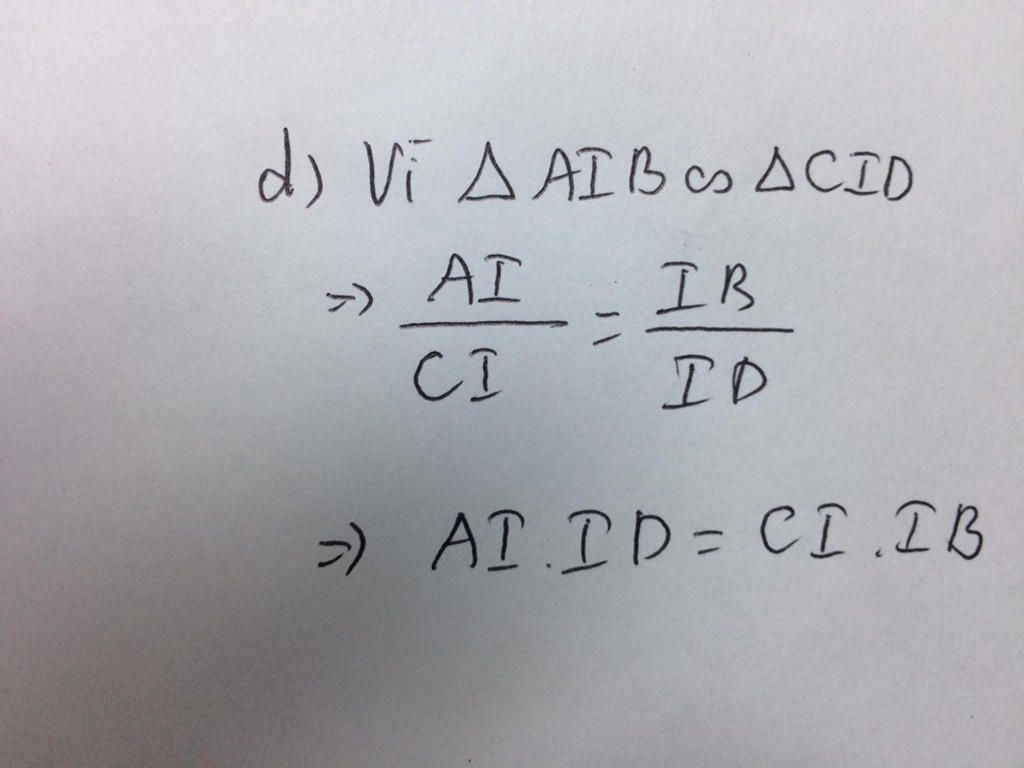 d) Vì Δ AIB ∽ Δ CID
=> AI/CI = IB/ID
=> AI . ID = CI . IB